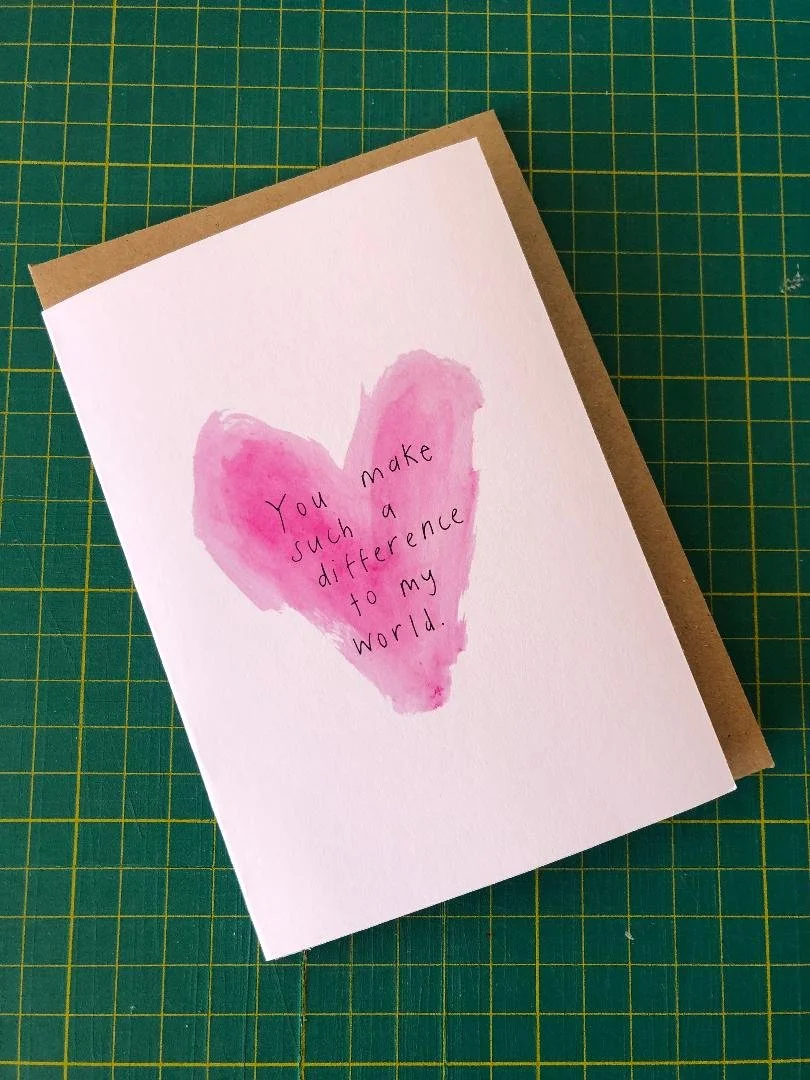 You make
such a
difference
to my
world.